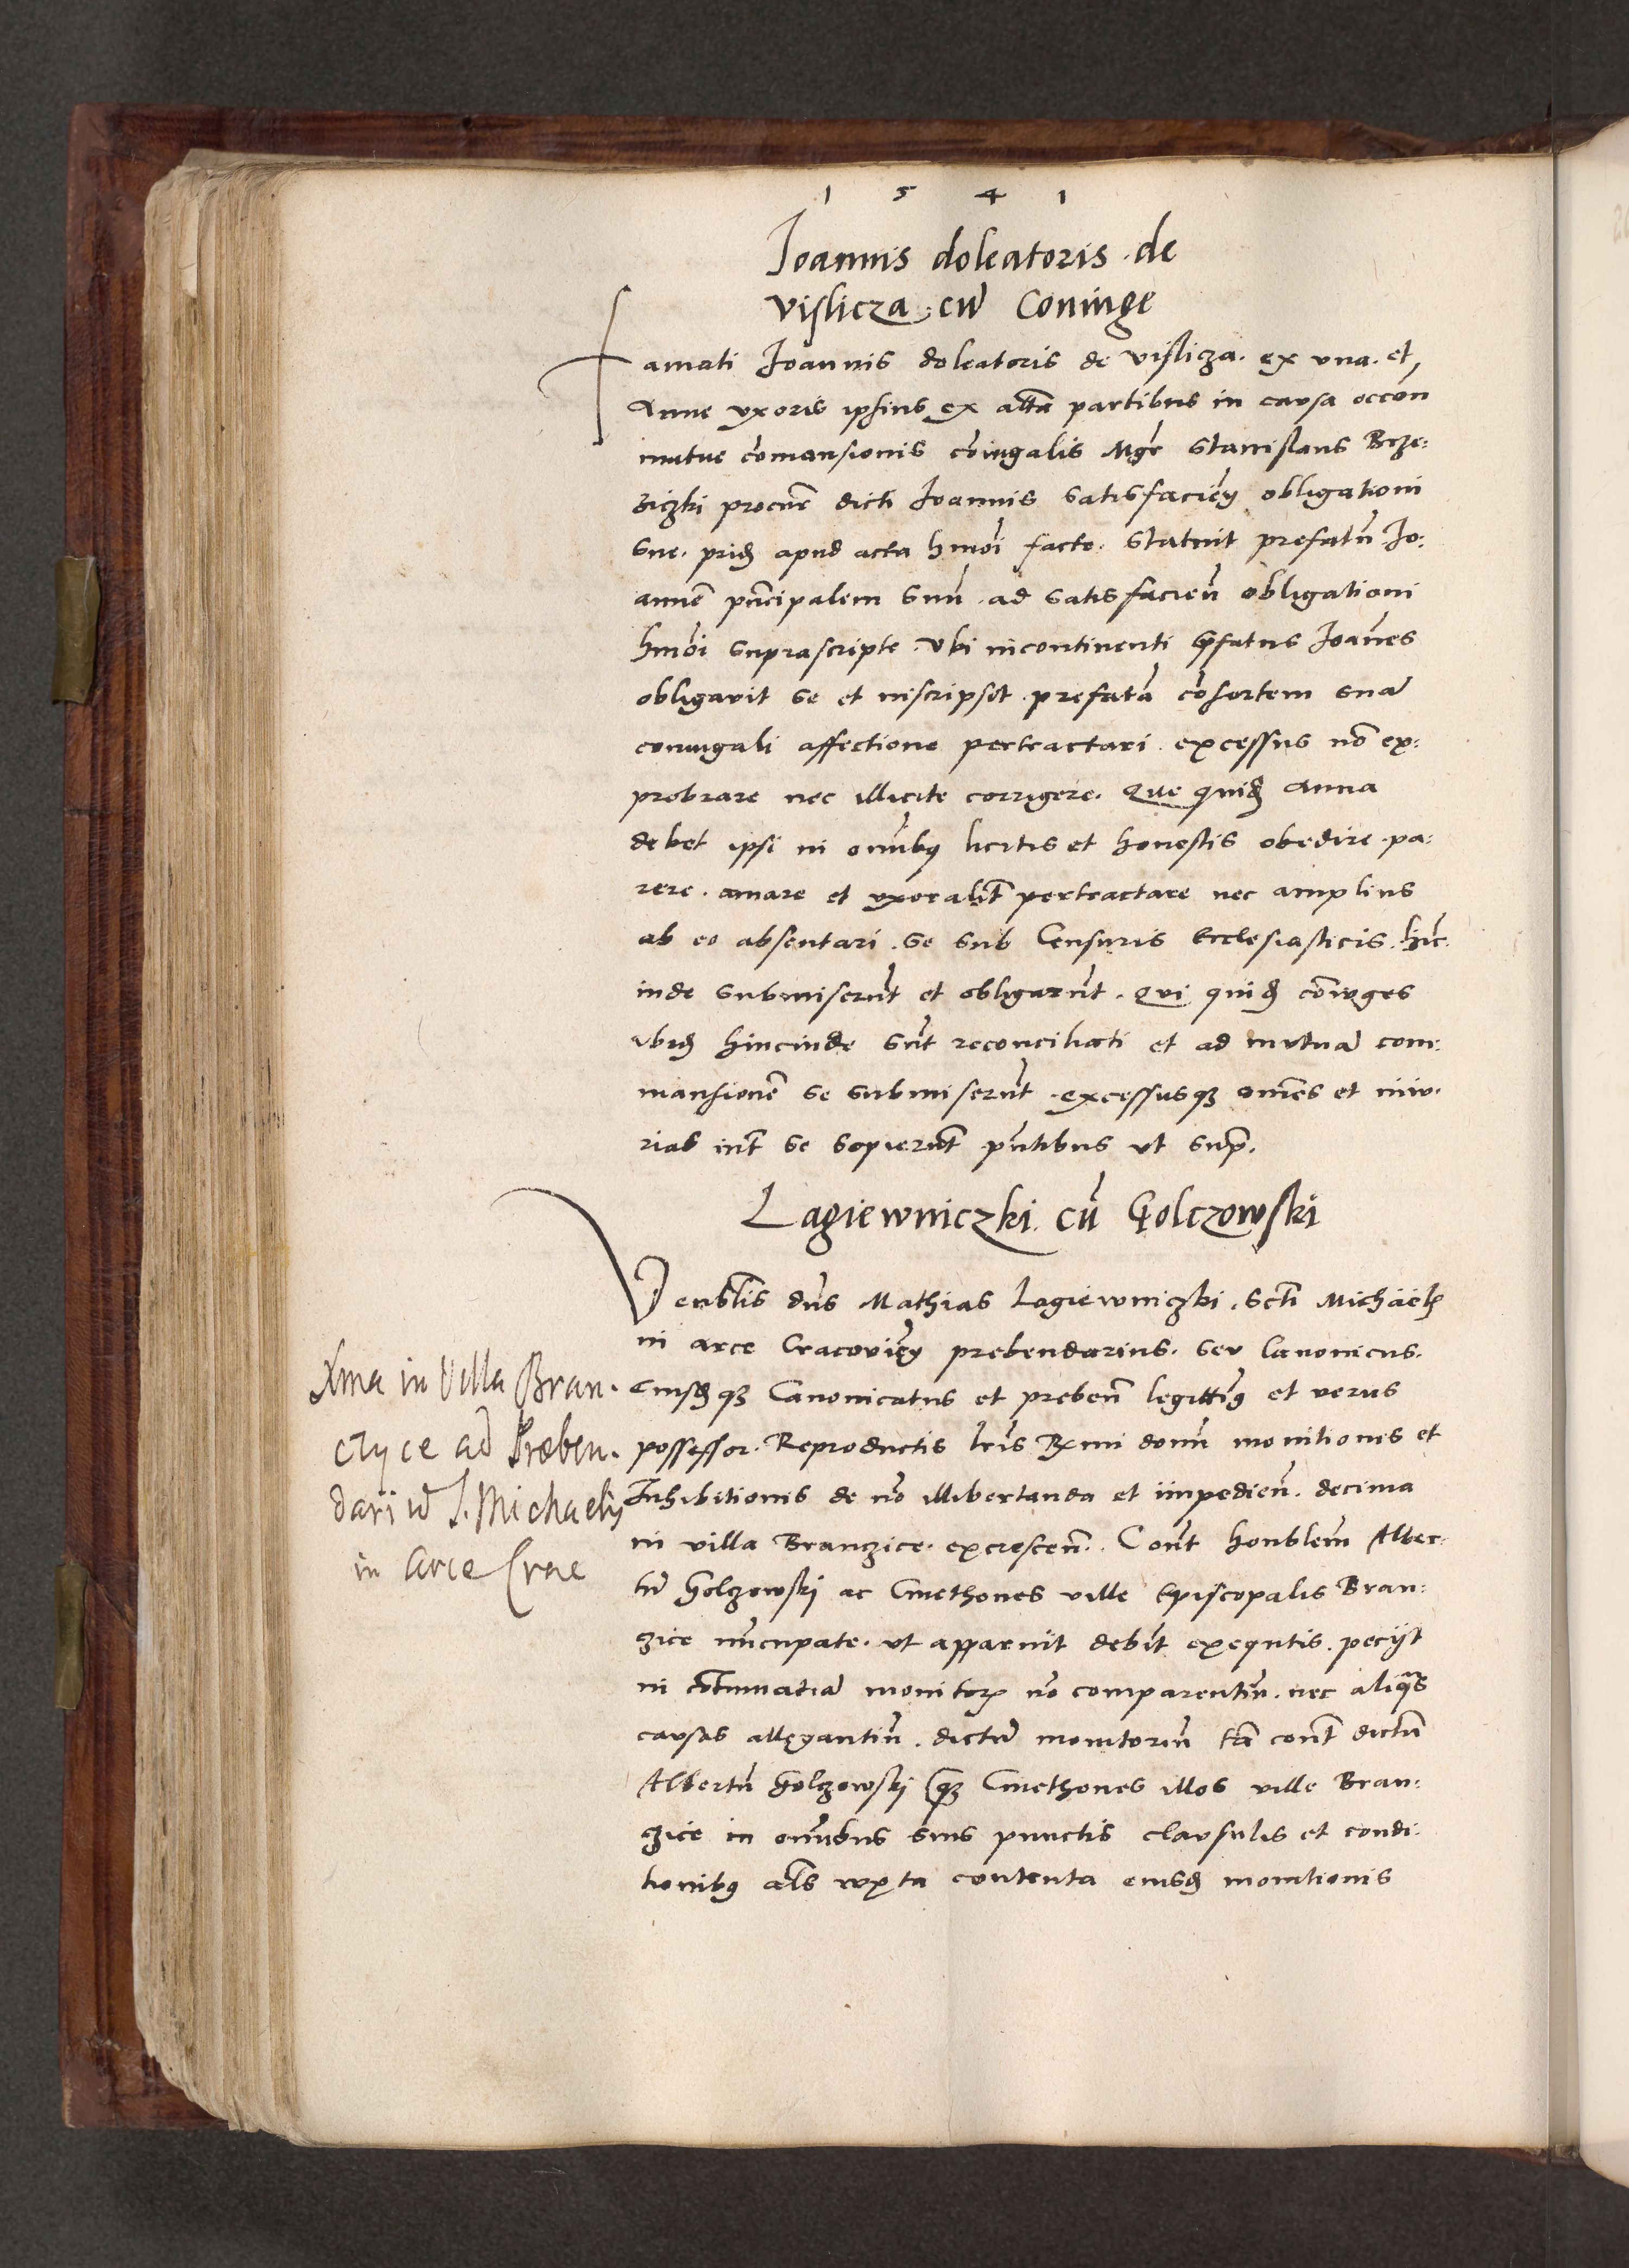 1 5 4 1
Joannis doleatoris de
vislicza cũ Coniuge
Famati Joannis doleatoris de vislicza. ex vna. et
Anne vxoris ipsius ex altã partibus in causa occõn
mutue cõmansionis cõiugalis Mgr̃ Stanislaus Brze:
ziczki procur̃ dicti Joannis satisfacieñ obligationi
sue. prid apud acta hmõi facte. Statuit prefatũ Jo:
annẽ prĩcipalem suũ. ad satisfacieñ obligationi
hmõi suprascripte. Vbi incontinenti prefatus Joañes
obligavit se et inscripsit. prefatã cõsortem suã
coniugali affectione pertractari. excessus nõ ex:
probrare nec illicite corrigere. Que quid Anna
debet ipsi in omĩbus licitis et honestis obedire. pa:
rere. amare et vxoralit̃ pertractare nec amplius
ab eo absentari. se sub Censuris Ecclesiasticis. hĩc
inde submiserũt et obligarũt. Qui quid cõiuges
ibid hincinde sũt reconciliati et ad mutuã com:
mansionẽ se submiserũt. excessusq omẽs et iniu:
rias int̃ se sopierũt pñtibus ut sup̃.
Lagiewniczki. cũ Golczowski
Venblis dñs Mathias Lagiewniczki. Scti Michaël
in arce Cracovieñ prebendarius. seu Canonicus.
Eiusdq Canonicatus et prebeñ legittĩus et verus
possessor. Reproductis lr̃is Rxmi domĩ monitionis et
Inhibitionis de nõ illibertanda et impedieñ. decima
in villa Branczice. excresceñ. Cont̃ honblem̃ Alber:
tũ Golczowski ac Cmethones ville Episcopalis Bran:
czice nũcupate. ut apparuit debit̃ exequtis. peciit
in cõtumatiã monitor nõ comparentiũ. nec aliquas
causas allegantiũ. dictũ monitoriũ tã cont̃ dictũ
Albertũ Golczowski q Cmethones illos ville Bran:
czice in omĩbus suis punctis clausulis et condi:
tionibus als iuxta contenta eiusd monitionis
Xma in Villa Bran.
czyce ad Præben.
dariũ S. Michaelis
in Arce Crac